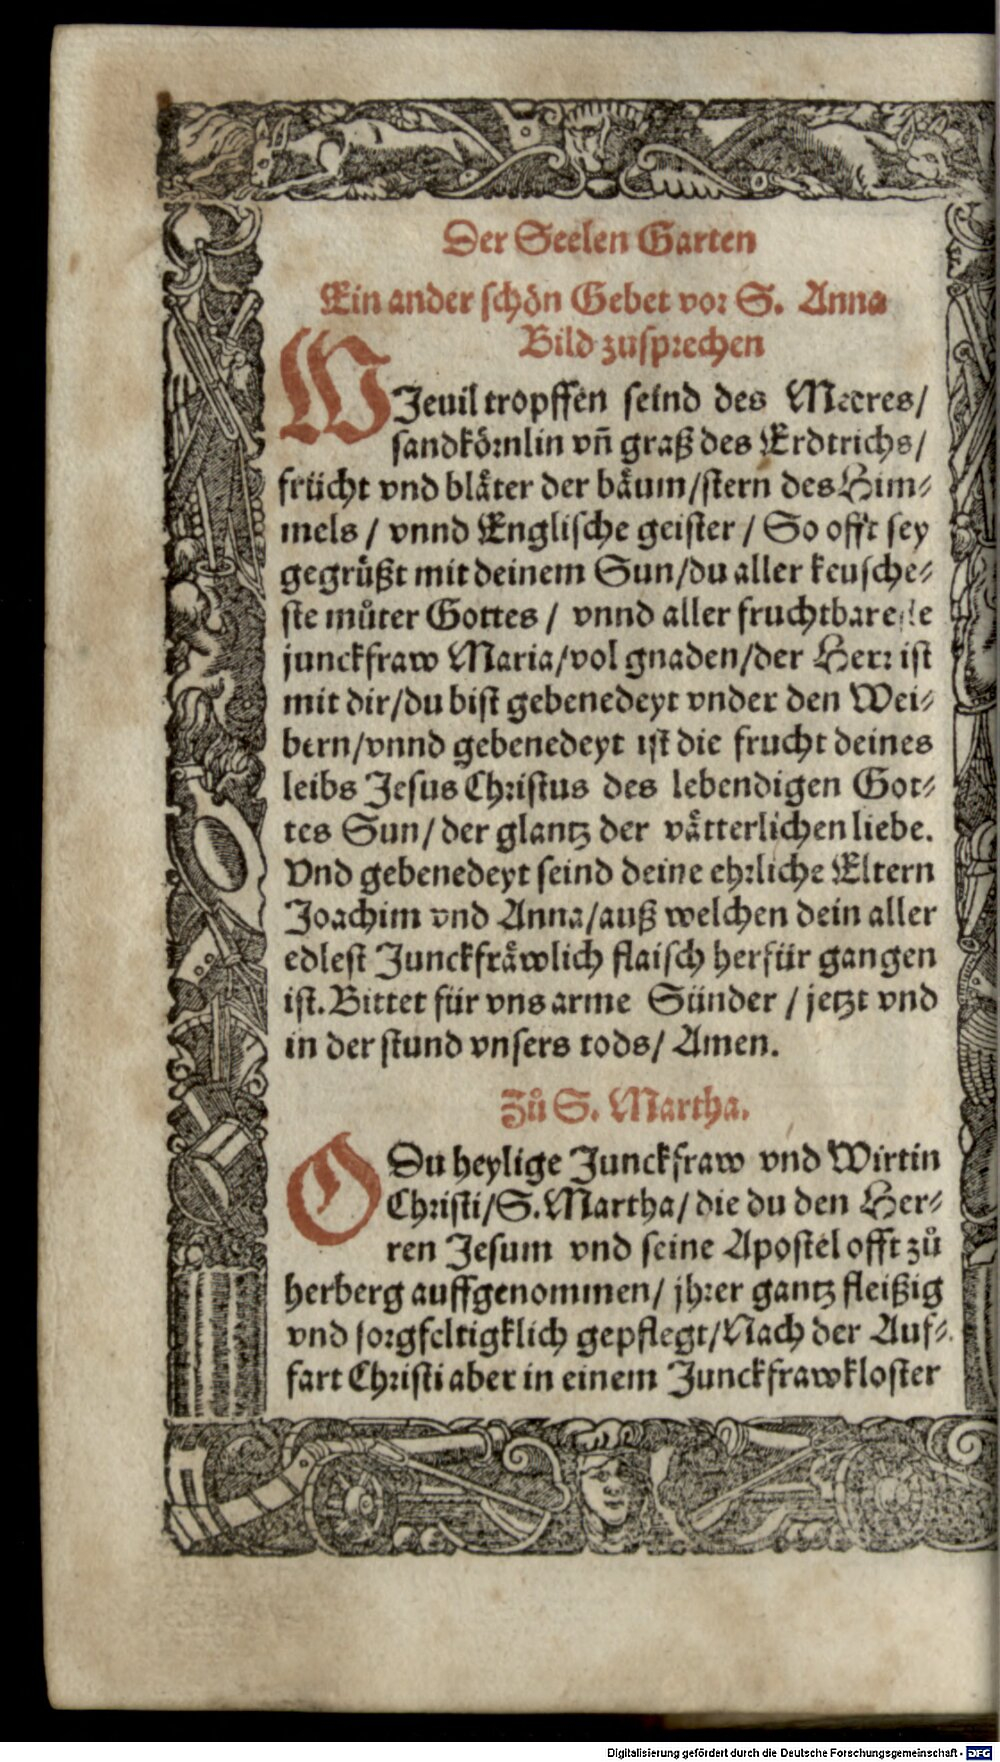 Der Seelen Garten
Ein ander schön Gebet vor S. Anna
Bild zusprechen
WJeuil tropffen seind des Meeres/
sandkörnlin vñ graß des Erdtrichs/
frücht vnd blaͤter der baͤum/stern des Him-
mels / vnnd Englische geister / So offt sey
gegruͤßt mit deinem Sun/du aller keusche-
ste muͦter Gottes / vnnd aller fruchtbareste
junckfraw Maria/vol gnaden/der Herr ist
mit dir/du bist gebenedeyt vnder den Wei-
bern/vnnd gebenedeyt ist die frucht deines
leibs Jesus Christus des lebendigen Got-
tes Sun/ der glantz der vaͤtterlichen liebe.
Vnd gebenedeyt seind deine ehrliche Eltern
Joachim vnd Anna/auß welchen dein aller
edlest Junckfraͤwlich flaisch herfür gangen
ist. Bittet für vns arme Sünder / jetzt vnd
in der stund vnsers tods/ Amen.
Zuͦ S. Martha.
O Du heylige Junckfraw vnd Wirtin
Christi/S. Martha/ die du den Her-
ren Jesum vnd seine Apostel offt zuͦ
herberg auffgenommen/ jhrer gantz fleißig
vnd sorgfeltigklich gepflegt/Nach der Auf-
fart Christi aber in einem Junckfrawkloster
Digitalisierung gefördert durch die Deutsche Forschungsgemeinschaft - DFG